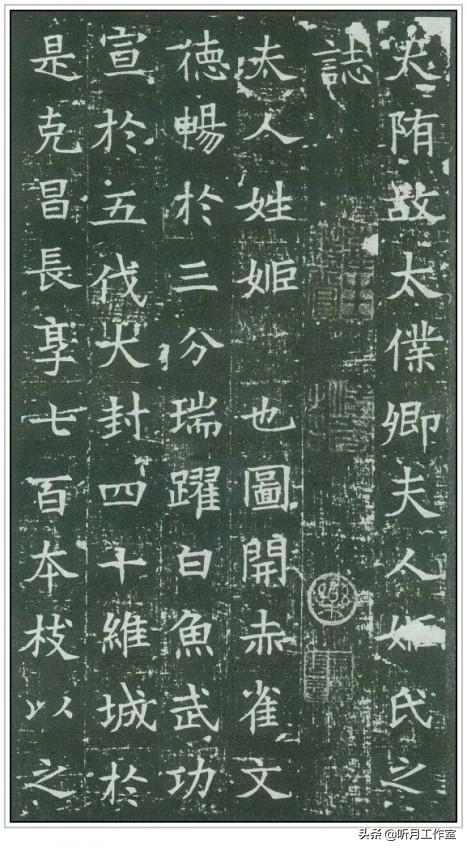 大陏故太僕卿夫人姬氏之
誌
夫人姓姬 也圖開赤雀文
德暢於三分瑞躍白魚武功
宣於五伐大封四十維城於
是克昌長享七百本枝以之
头条 @听月工作室